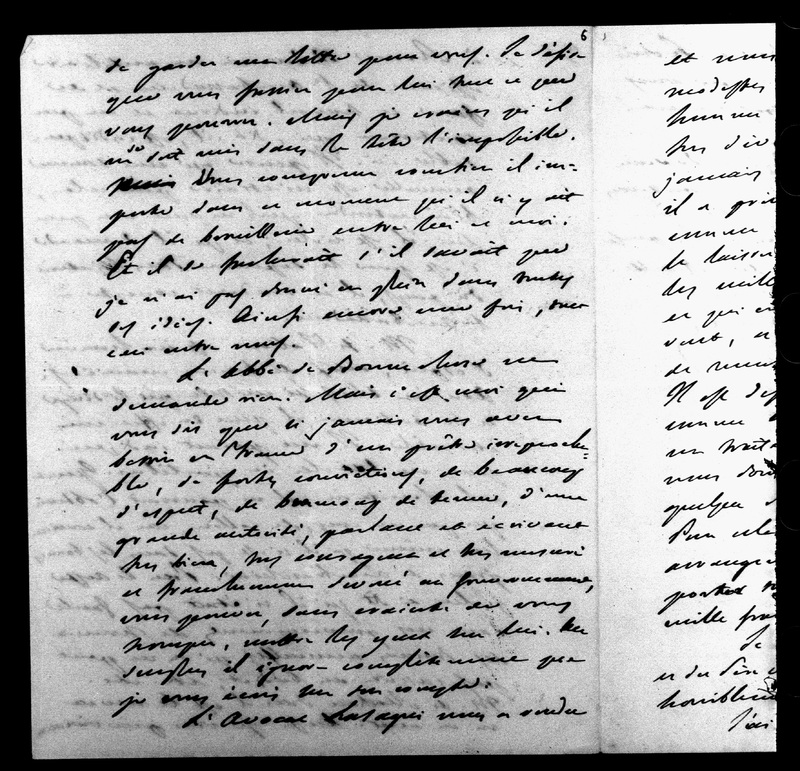 6
de garder cette lettre pour vous. Je désire
que vous fassiez pour lui tout ce que
vous pourrez. Mais je crains qu'il
ne se soit mis dans la tête l'impossible.
Vous comprenez combien il im-
porte dans ce moment qu'il n'y ait
pas de brouillerie entre lui et moi.
Et il se fâcherait s'il savait que
je n'ai pas donné en plein dans toutes
ses idées. Ainsi encore une fois, tout
ceci entre nous.
L'abbé de Bonnechose ne
demande rien. Mais c'est moi qui
vous dis que si jamais vous avez
besoin en France d'un prêtre irréprocha=
ble, de fortes convictions, de beaucoup
d'esprit, de beaucoup de tenue, d'une
grande autorité, parlant et écrivant
très bien, très courageux et très mesuré
et franchement dévoué au gouvernement,
vous pouvez, sans crainte de vous
tromper, mettre les yeux sur lui. Au
surplus il ignore complètement que
je vous écris sur son compte.
L'avocat nous a rendu
et nous
modestes
homme
très
jamais
il a
comme
de laisser
les mille
et qui
vont,
de
Il est
comme
un
nous
quelque
Pour
arrange
portes
mille
Je
et du
horriblement
J'ai